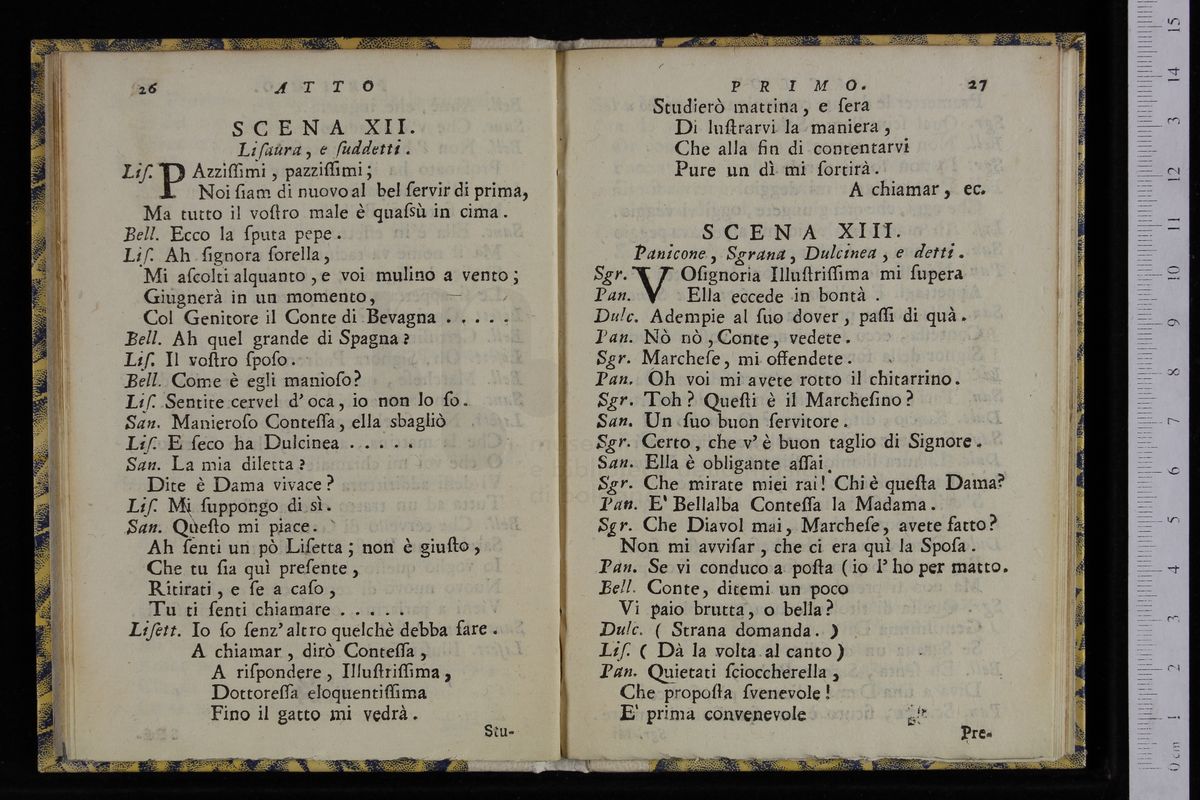 26 ATTO
SCENA XII.
Liſaura, e ſuddetti.
Liſ. PAzziſſimi, pazziſſimi;
Noi ſiam di nuovo al bel ſervir di prima,
Ma tutto il voſtro male è quaſsù in cima.
Bell. Ecco la ſputa pepe.
Liſ. Ah ſignora ſorella,
Mi aſcolti alquanto, e voi mulino a vento;
Giugnerà in un momento,
Col Genitore il Conte di Bevagna . . . . .
Bell. Ah quel grande di Spagna?
Liſ. Il voſtro ſpoſo.
Bell. Come è egli manioſo?
Liſ. Sentite cervel d'oca, io non lo ſo.
San. Manieroſo Conteſſa, ella sbagliò
Liſ. E ſeco ha Dulcinea . . . . .
San. La mia diletta?
Dite è Dama vivace?
Liſ. Mi ſuppongo di sì.
San. Queſto mi piace.
Ah ſenti un pò Liſetta; non è giuſto,
Che tu ſia quì preſente,
Ritirati, e ſe a caſo,
Tu ti ſenti chiamare . . . . .
Liſett. Io ſo ſenz'altro quelchè debba fare.
A chiamar, dirò Conteſſa,
A riſpondere, Illuſtriſſima,
Dottoreſſa eloquentiſſima
Fino il gatto mi vedrà.
Stu-
PRIMO. 27
Studierò mattina, e ſera
Di luſtrarvi la maniera,
Che alla fin di contentarvi
Pure un dì mi ſortirà.
A chiamar, ec.
SCENA XIII.
Panicone, Sgrana, Dulcinea, e detti.
Sgr. VOſignoria Illuſtriſſima mi ſupera
Pan. Ella eccede in bontà.
Dulc. Adempie al ſuo dover, paſſi di quà.
Pan. Nò nò, Conte, vedete.
Sgr. Marcheſe, mi offendete.
Pan. Oh voi mi avete rotto il chitarrino.
Sgr. Toh? Queſti è il Marcheſino?
San. Un ſuo buon ſervitore.
Sgr. Certo, che v'è buon taglio di Signore.
San. Ella è obligante aſſai.
Sgr. Che mirate miei rai! Chi è queſta Dama?
Pan. E' Bellalba Conteſſa la Madama.
Sgr. Che Diavol mai, Marcheſe, avete fatto?
Non mi avviſar, che ci era quì la Spoſa.
Pan. Se vi conduco a poſta (io l'ho per matto.
Bell. Conte, ditemi un poco
Vi paio brutta, o bella?
Dulc. ( Strana domanda. )
Liſ. ( Dà la volta al canto )
Pan. Quietati ſcioccherella,
Che propoſta ſvenevole!
E' prima convenevole
Pre-
0 cm 1 2 3 4 5 6 7 8 9 10 11 12 13 14 15